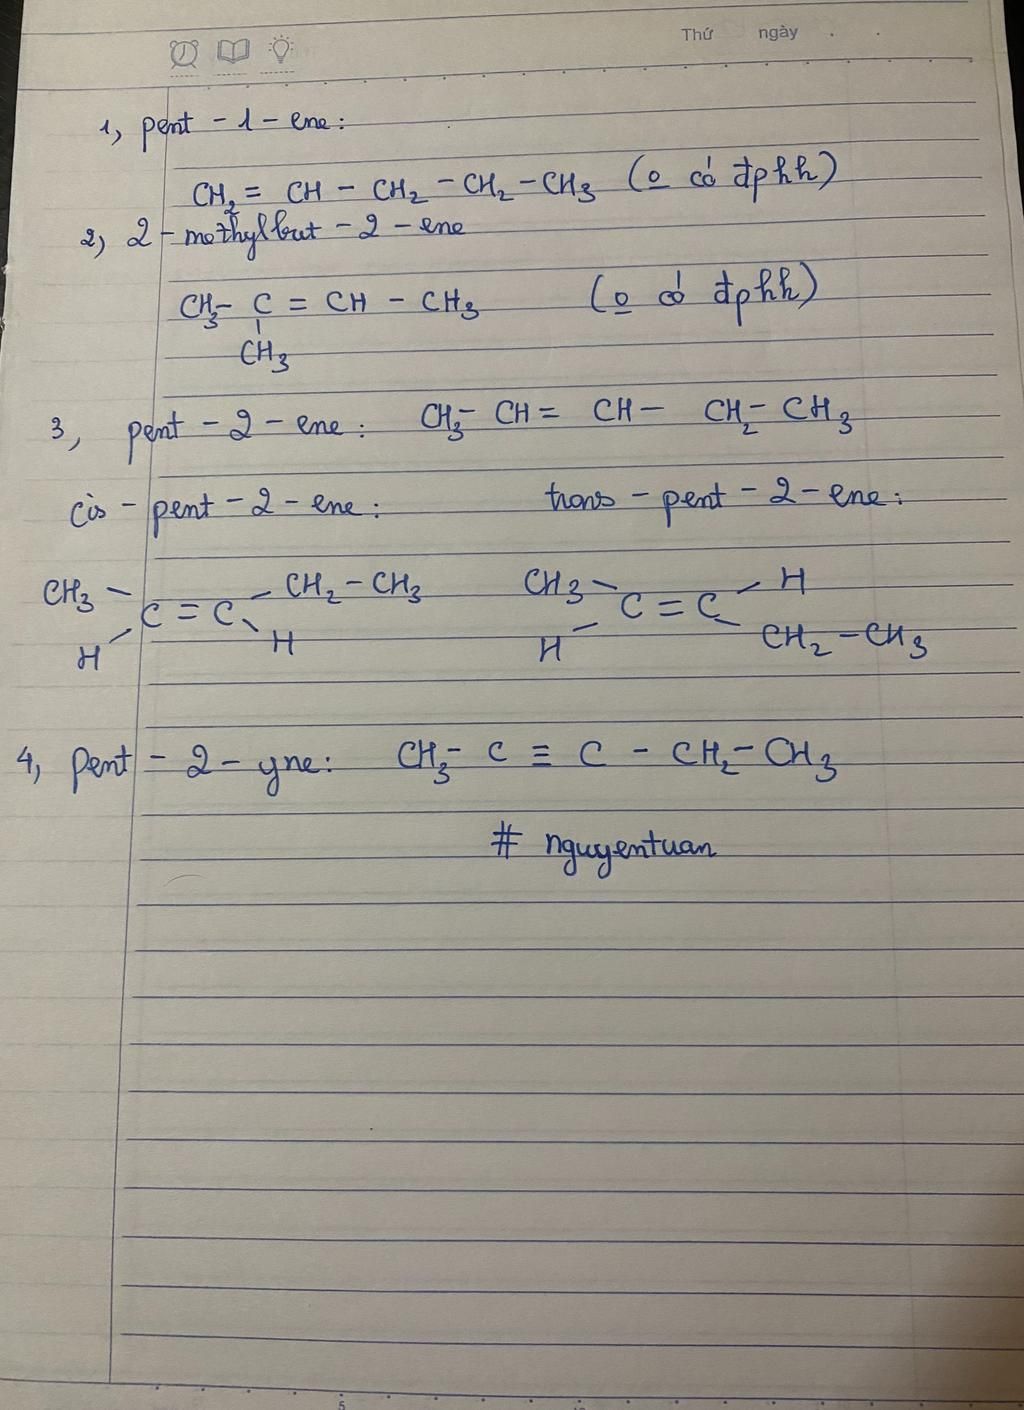 Thứ ngày . .
1, pent - 1 - ene:
CH₂ = CH - CH₂ - CH₂ - CH₃ (o có đphh)
2, 2 - methylbut - 2 - ene
CH₃ - C = CH - CH₃ (o có đphh)
CH₃
3, pent - 2 - ene: CH₃ - CH = CH - CH₂ - CH₃
cis - pent - 2 - ene: trans - pent - 2 - ene:
CH₃ CH₂ - CH₃ CH₃ H
C = C C = C
H H H CH₂ - CH₃
4, pent - 2 - yne: CH₃ - C ≡ C - CH₂ - CH₃
# nguyentuan
5